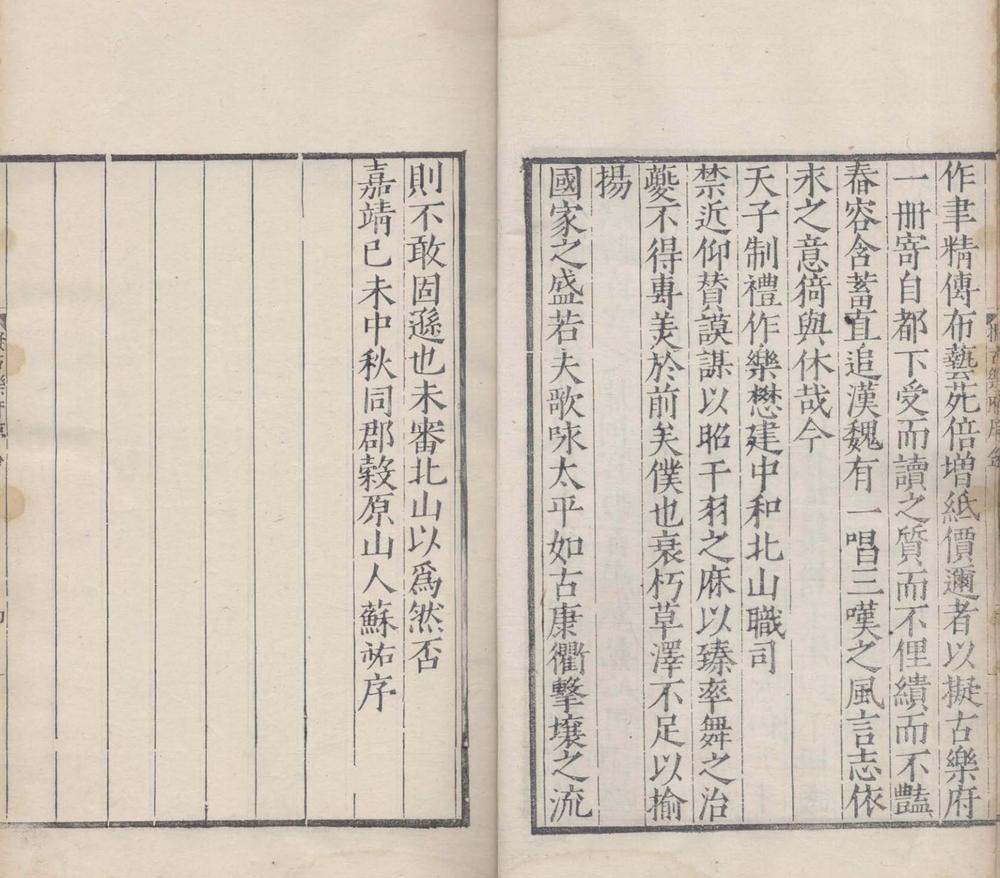 作聿精傳布藝苑倍增紙價邇者以擬古樂府
一冊寄自都下受而讀之質而不俚績而不豔
舂容含蓄直追漢魏有一唱三嘆之風言志依
永之意猗與休哉今
天子制禮作樂懋建中和北山職司
禁近仰贊謨謀以昭干羽之庥以臻率舞之治
夔不得專美於前矣僕也衰朽草澤不足以揄
揚
國家之盛若夫歌咏太平如古康衢擊壤之流
則不敢固遜也未審北山以爲然否
嘉靖己未中秋同郡穀原山人蘇祐序